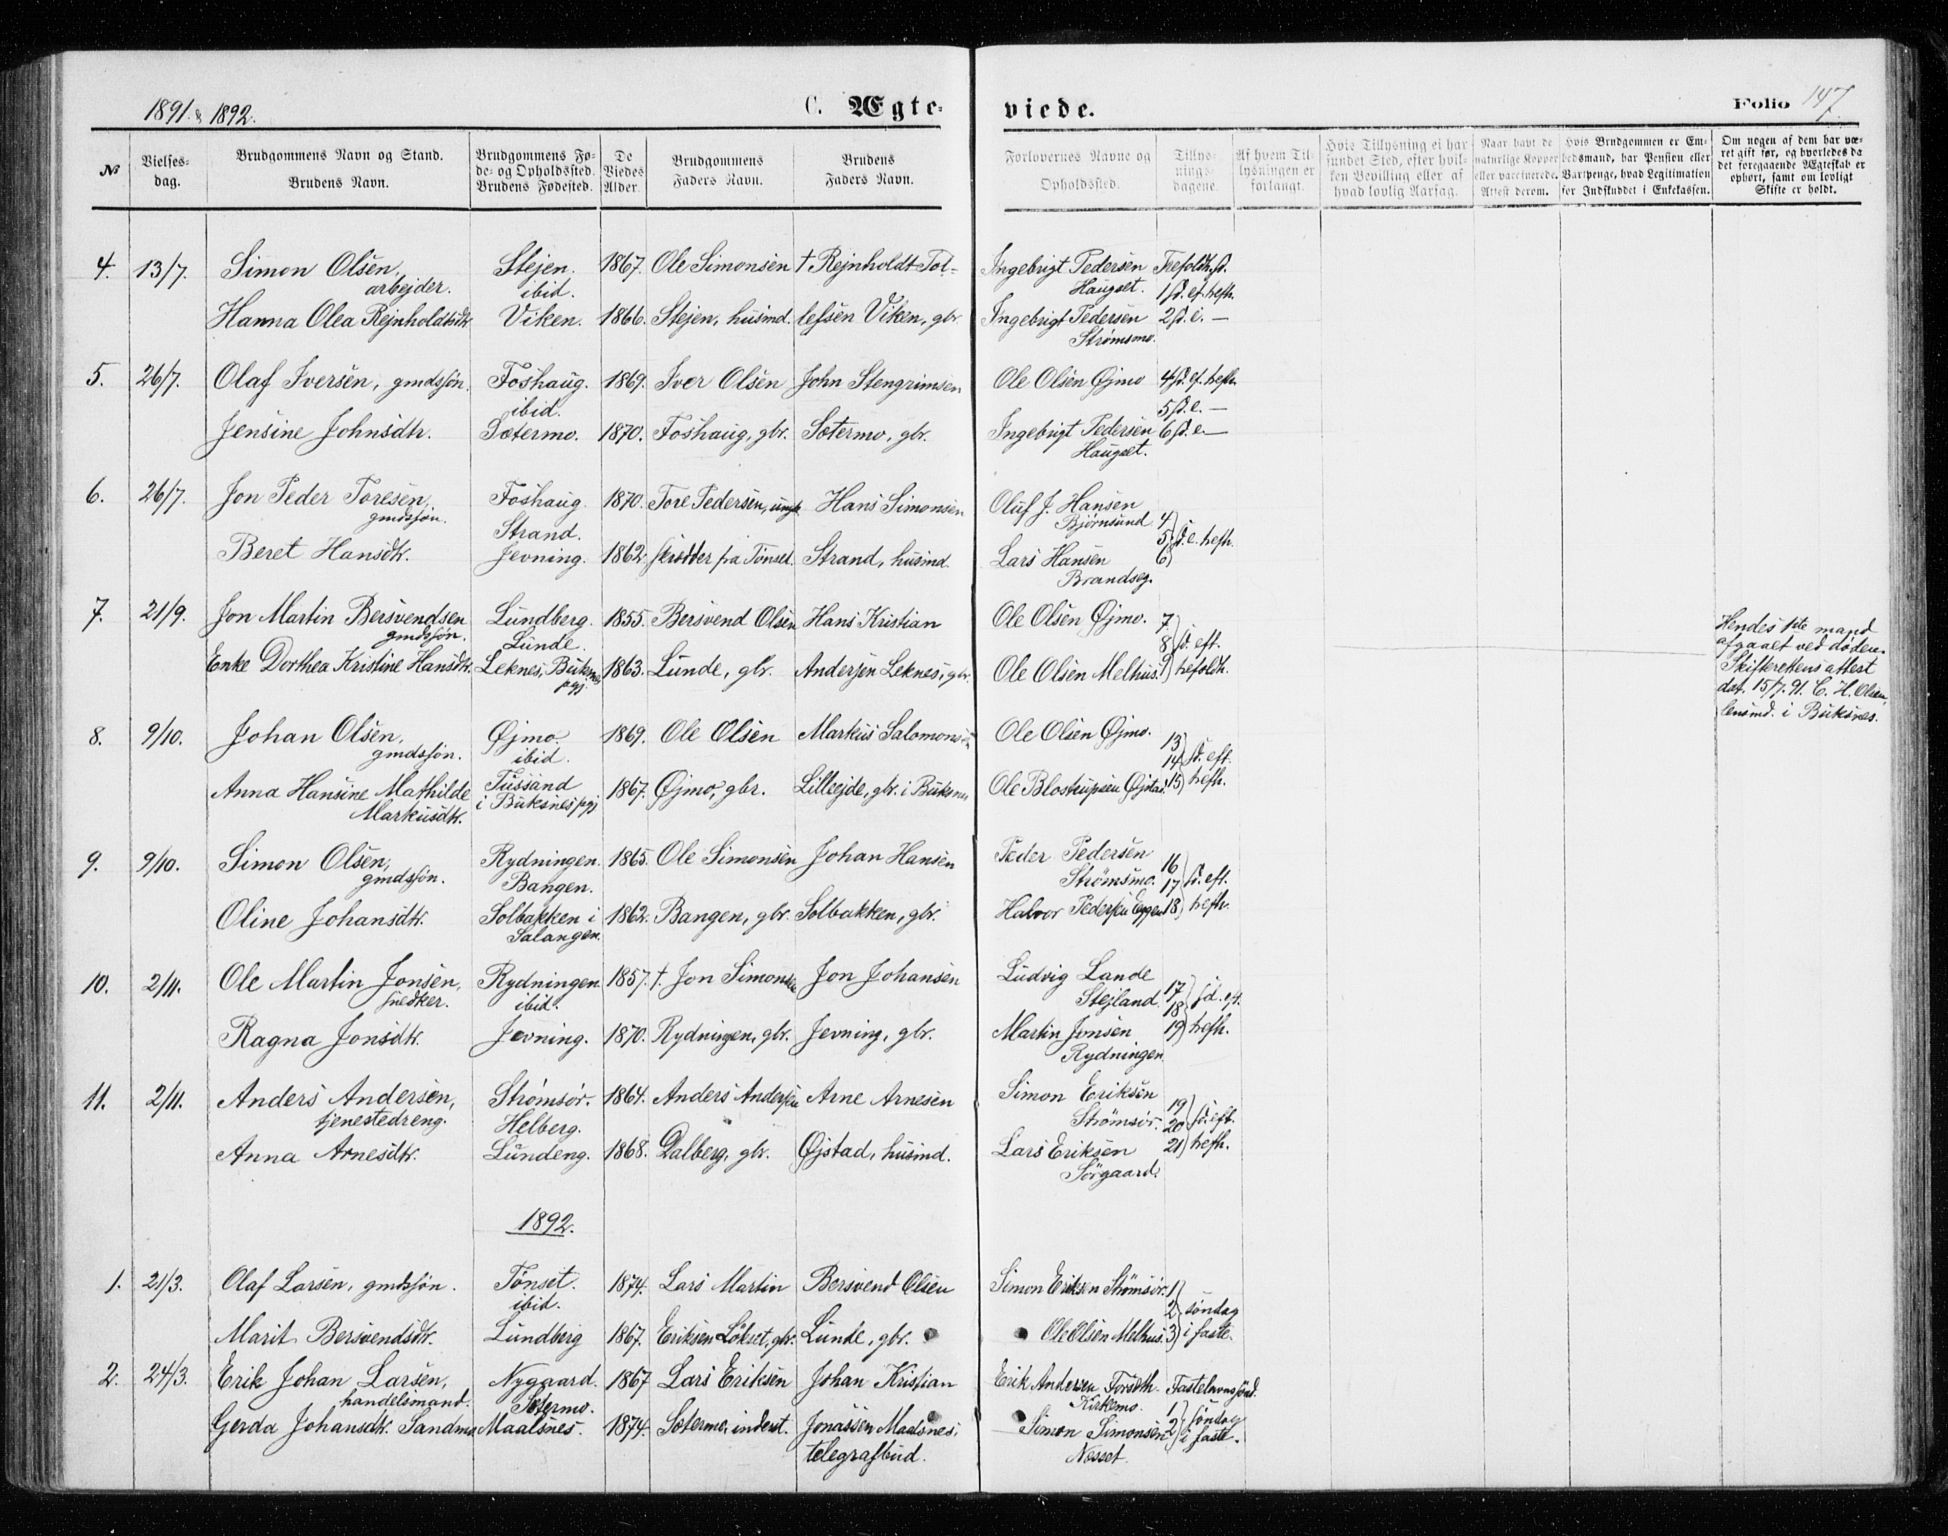 1891 & 1892. C. Ægte- viede. Folio 147
№ Vielses-dag. Brudgommens Navn og Stand. Brudens Navn. Brudgommens Fø-de- og Opholdssted. Brudens Fødested. De Viedes Alder. Brudgommens Faders Navn. Brudens Faders Navn. Forlovernes Navne og Opholdssted. Tillys-nings-dagene. Af hvem Til-lysningen er forlangt. Hvis Tillysning ei har fundet Sted, efter hvil-ken Bevilling eller af hvad lovlig Aarsag. Naar havt de naturlige Kopper eller vaccinerede. Attest derom. Hvis Brudgommen er Em-bedsmand, har Pension eller Vartpenge, hvad Legitimation for Indskuddet i Enkekassen. Om nogen af dem har væ-ret gift før, og hvorledes da det foregaaende Ægteskab er ophørt, samt om lovligt Skifte er holdt.
4. 13/7. Simon Olsen, Stejen. 1867. Ole Simonsen † Rejnholdt Tol- Ingebrigt Pedersen Trefoldh. sd.
arbejder. ibid. Haugset. 1 sd. ef. hefh.
Hanna Olea Rejnholdtsdtr. Viken. 1866. Stejen, husmd. lefsen Viken, gbr. Ingebrigt Pedersen 2 sd. e. —
Strømsmo.
5. 26/7. Olaf Iversen, gmdssøn. Foshaug. 1869. Iver Olsen John Stengrimsen Ole Olsen Øjmo 4 sd. ef. hefh.
ibid. 5 sd. e. —
Jensine Johnsdtr. Sætermo. 1870. Foshaug, gbr. Sætermo, gbr. Ingebrigt Pedersen 6 sd. e. —
Haugset.
6. 26/7. Jon Peder Toresen, Foshaug. 1870. Tore Pedersen, ungk. Hans Simonsen Oluf J. Hansen
gmdssøn. Strand. Bjørnsund 4
5 } sd. e. hefh.
Beret Hansdtr. Jevning. 1862. skrædder fra Tønset. Strand, husmd. Lars Hansen 6
Brandseg.
7. 21/9. Jon Martin Bersvendsen Lundberg. 1855. Bersvend Olsen Hans Kristian Ole Olsen Øjmo. 7
gmdssøn. Lunde. 8 } sd. eft.
Enke Dorthea Kristine Hansdtr. Leknes, Buksnes 1863. Lunde, gbr. Andersen Leknes, gbr. Ole Olsen Melhus. 9 hefoldh.
pgj.
Hendes 1ste mand
afgaaet ved døden.
Skifterettens attest
dat. 15/7. 91. C. H. Olsen,
lensmd. i Buksnes.
8. 9/10. Johan Olsen, Øjmo. 1869. Ole Olsen Markus Salomonsen Ole Olsen Øjmo. 13
gmdssøn. ibid. 14 } sd. eft.
Anna Hansine Mathilde Tussand 1867. Øjmo, gbr. Lilleejde, gbr. i Buksnes Ole Blostrupsen Øjstad. 15 hefh.
Markusdtr. i Buksnes pgj
9. 9/10. Simon Olsen, Rydningen. 1865. Ole Simonsen Johan Hansen Peder Pedersen 16
gmdssøn. Bangen. Strømsmo. 17 } sd. eft.
Oline Johansdtr. Solbakken i 1862. Bangen, gbr. Solbakken, gbr. Halvor Pedersen Eggen 18 hefh.
Salangen.
10. 2/11. Ole Martin Jonsen, Rydningen 1857. †. Jon Simonsen Jon Johansen Ludvig Lande 17
snedker. ibid. Stejland. 18 } sd. eft.
Ragna Jonsdtr. Jevning. 1870. Rydningen, gbr. Jevning, gbr. Martin Jonsen 19 hefh.
Rydningen
11. 2/11. Anders Andersen, Strømsør. 1864. Anders Andersen Arne Arnesen Simon Eriksen 19
tjenestedreng. Helberg. Strømsør. 20 } sd. eft.
Anna Arnesdtr. Lundeng. 1868. Dalberg, gbr. Øjstad, husmd. Lars Eriksen 21 hefh.
Sørgaard.
1892.
1. 21/3. Olaf Larsen, gmdssøn. Tønset. 1874. Lars Martin Bersvend Olsen Simon Eriksen Strømsør. 1
ibid. 2 } søndag
Marit Bersvendsdtr. Lundberg 1867. Eriksen Løkset, gbr. Lunde, gbr. Ole Olsen Melhus. 3 i faste.
2. 24/3. Erik Johan Larsen, Nygaard. 1867 Lars Eriksen Johan Kristian Erik Andersen Forseth Fastelavnssønd.
handelsmand. Sætermo. Kirkemo. 1
Gerda Johansdtr. Sandmo Maalsnes. 1874. Sætermo, inderst. Jonassen Maalsnes, Simon Simonsen 2 } søndag i faste.
telegrafbud. Nesset.